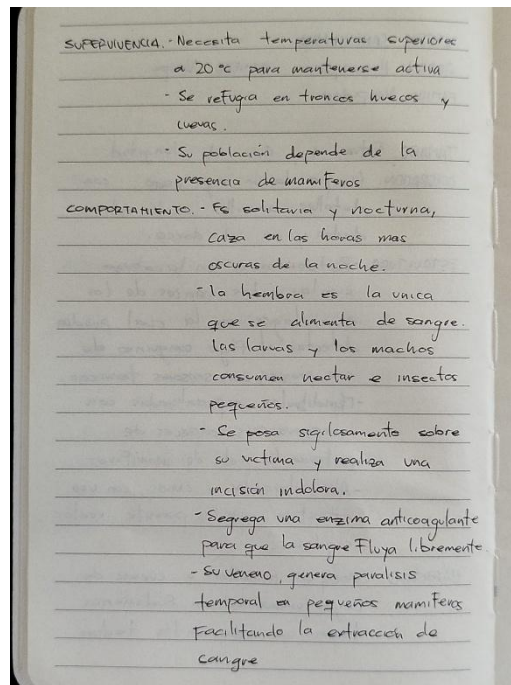 SUPERVIVENCIA. - Necesita temperaturas superiores
a 20°c para mantenerse activa
- Se refugia en troncos huecos y
cuevas.
- Su población depende de la
presencia de mamíferos
COMPORTAMIENTO. - Es solitaria y nocturna,
caza en las horas mas
oscuras de la noche.
- la hembra es la unica
que se alimenta de sangre.
las larvas y los machos
consumen nectar e insectos
pequeños.
- Se posa sigilosamente sobre
su victima y realiza una
incisión indolora.
- Segrega una enzima anticoagulante
para que la sangre Fluya libremente
- su veneno, genera paralisis
temporal en pequeños mamiferos
Facilitando la extracción de
sangre